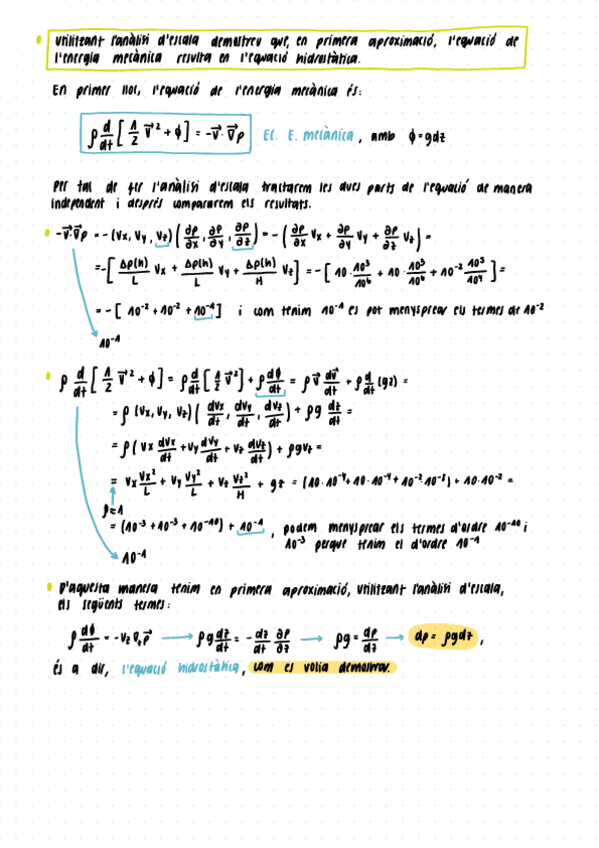 Utilitzant l'anàlisi d'escala demostreu que, en primera aproximació, l'equació de
l'energia mecànica resulta en l'equació hidrostàtica.
En primer lloc, l'equació de l'energia mecànica és:
ρ d/dt [ 1/2 v⃗² + ϕ ] = -v⃗ · ∇⃗p Ec. E. mecànica, amb ϕ=gdz
Per tal de fer l'anàlisi d'escala tractarem les dues parts de l'equació de manera
independent i després compararem els resultats.
-v⃗·∇⃗p = -(Vx, Vy, Vz) (∂p/∂x, ∂p/∂y, ∂p/∂z) = -(∂p/∂x Vx + ∂p/∂y Vy + ∂p/∂z Vz) =
= -[ Δp(h)/L Vx + Δp(h)/L Vy + Δp(h)/H Vz ] = -[ 10 · 10³/10⁶ + 10 · 10³/10⁶ + 10⁻² 10⁵/10⁴ ] =
= -[ 10⁻² + 10⁻² + 10⁻¹ ] i com tenim 10⁻¹ es pot menysprear els termes de 10⁻²
10⁻¹
ρ d/dt [ 1/2 v⃗² + ϕ ] = ρ d/dt [ 1/2 v⃗² ] + ρ dϕ/dt = ρ v⃗ dv⃗/dt + ρ d/dt (gz) =
= ρ (Vx, Vy, Vz) ( dVx/dt, dVy/dt, dVz/dt ) + ρg dz/dt =
= ρ ( Vx dVx/dt + Vy dVy/dt + Vz dVz/dt ) + ρgVz =
= Vx Vx²/L + Vy Vy²/L + Vz Vz²/H + gz = (10·10⁻⁴ + 10·10⁻⁴ + 10⁻²·10⁻⁸) + 10·10⁻² =
ρ≈1
= (10⁻³ + 10⁻³ + 10⁻¹⁰) + 10⁻¹, podem menysprear els termes d'ordre 10⁻¹⁰ i
10⁻³ perque tenim el d'ordre 10⁻¹
10⁻¹
D'aquesta manera tenim en primera aproximació, utilitzant l'anàlisi d'escala,
els següents termes:
ρ dϕ/dt = -Vz ∇zp⃗ → ρg dz/dt = -dz/dt ∂p/∂z → ρg = dp/dz → dp = ρgdz,
és a dir, l'equació hidrostàtica, com es volia demostrar.